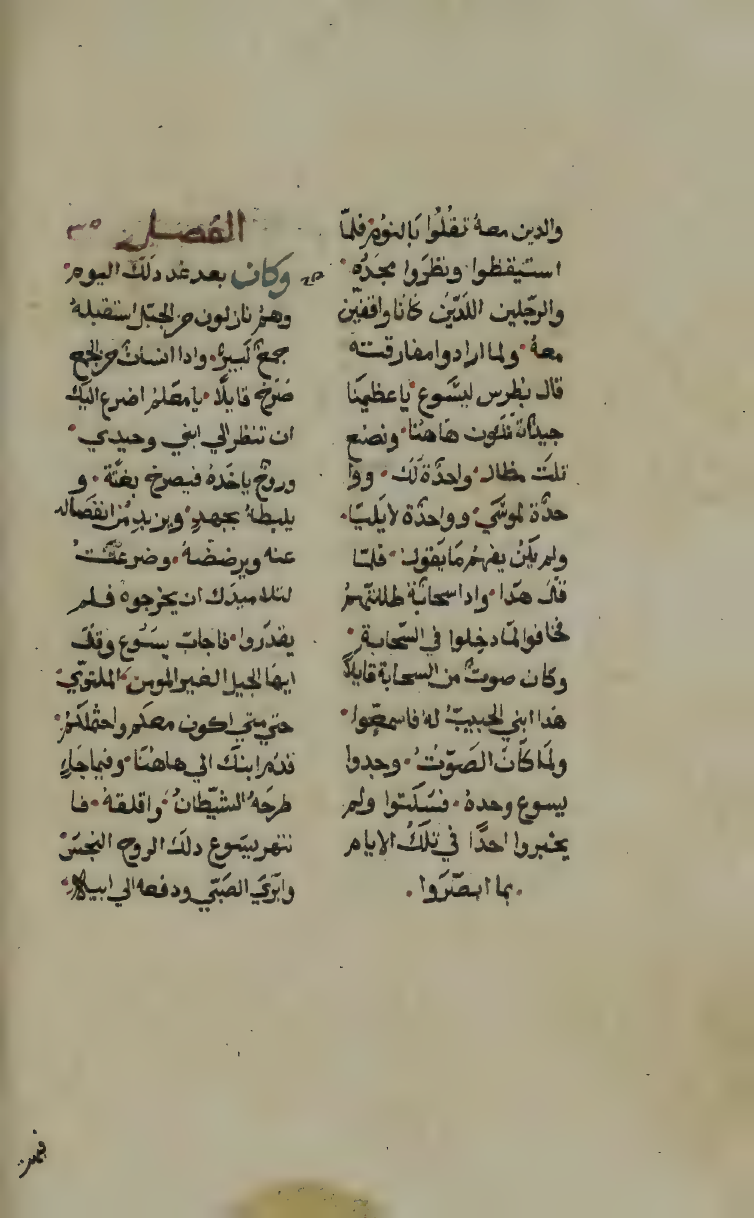 والدين معهُ تقُلُوا بَالنوُم فلمّا
استيقظوا ونظرَوا مجدُه
والرّجلين اللدَين كانا واقفين
معهُ ولما ارادوا مفارقته
قال بُطرس ليسُّوع يا عظيمَنا
جيدٌ ان نكون هَاهنَا ونصنع
تلتَ مظال واحدَة لَك ووا
حدَة لموسَي وواحدَة لايليّا
ولم يكنُ يفهمُ مَا يقول فلمّا
قال هَدا وادا سحابَة ظللتهُم
فخافوا لمّا دخلوا في السّحابة
وكان صوتٌ من السحابة قايلاً
هَدا ابني الحبيبُ لهُ فاسمعُوا
ولمّا كانَ الصَوّتُ وجدوا
يسوع وحدهُ فسَكتوا ولم
يخبروا احدًا في تلكَ الايام
بما ابصَرَوا
الفصل ٣٥
وكان بعد غد دلك اليوم
وهمُ نازلون من الجبَل استقبلهُ
جمعٌ كبيرٌ وادا انسانٌ من الجمع
صَرخ قايلًا يا معَلمُ اضرع اليك
ان تنظر الي ابني وحيدي
وروحٌ ياخدهُ فيصرخ بغتَة و
يلبطهُ بجهدٍ ويزيد من انفصَاله
عنه ويرضضهُ وضرعتُ
لتلاميدك ان يخرجوهُ فلم
يقدَروا فاجابَ يسَوع وقال
ايهَا الجيل الغير المومن الملتوي
حتي متي اكون معكم واحتملكمُ
قدم ابنك الي هاهنَا وفيما جَا
طرحَهُ الشيّطانُ واقلقهُ فا
نتهر يسَوع دلكَ الروح النجسَ
وابَري الصَبّي ودفعه الي ابيه